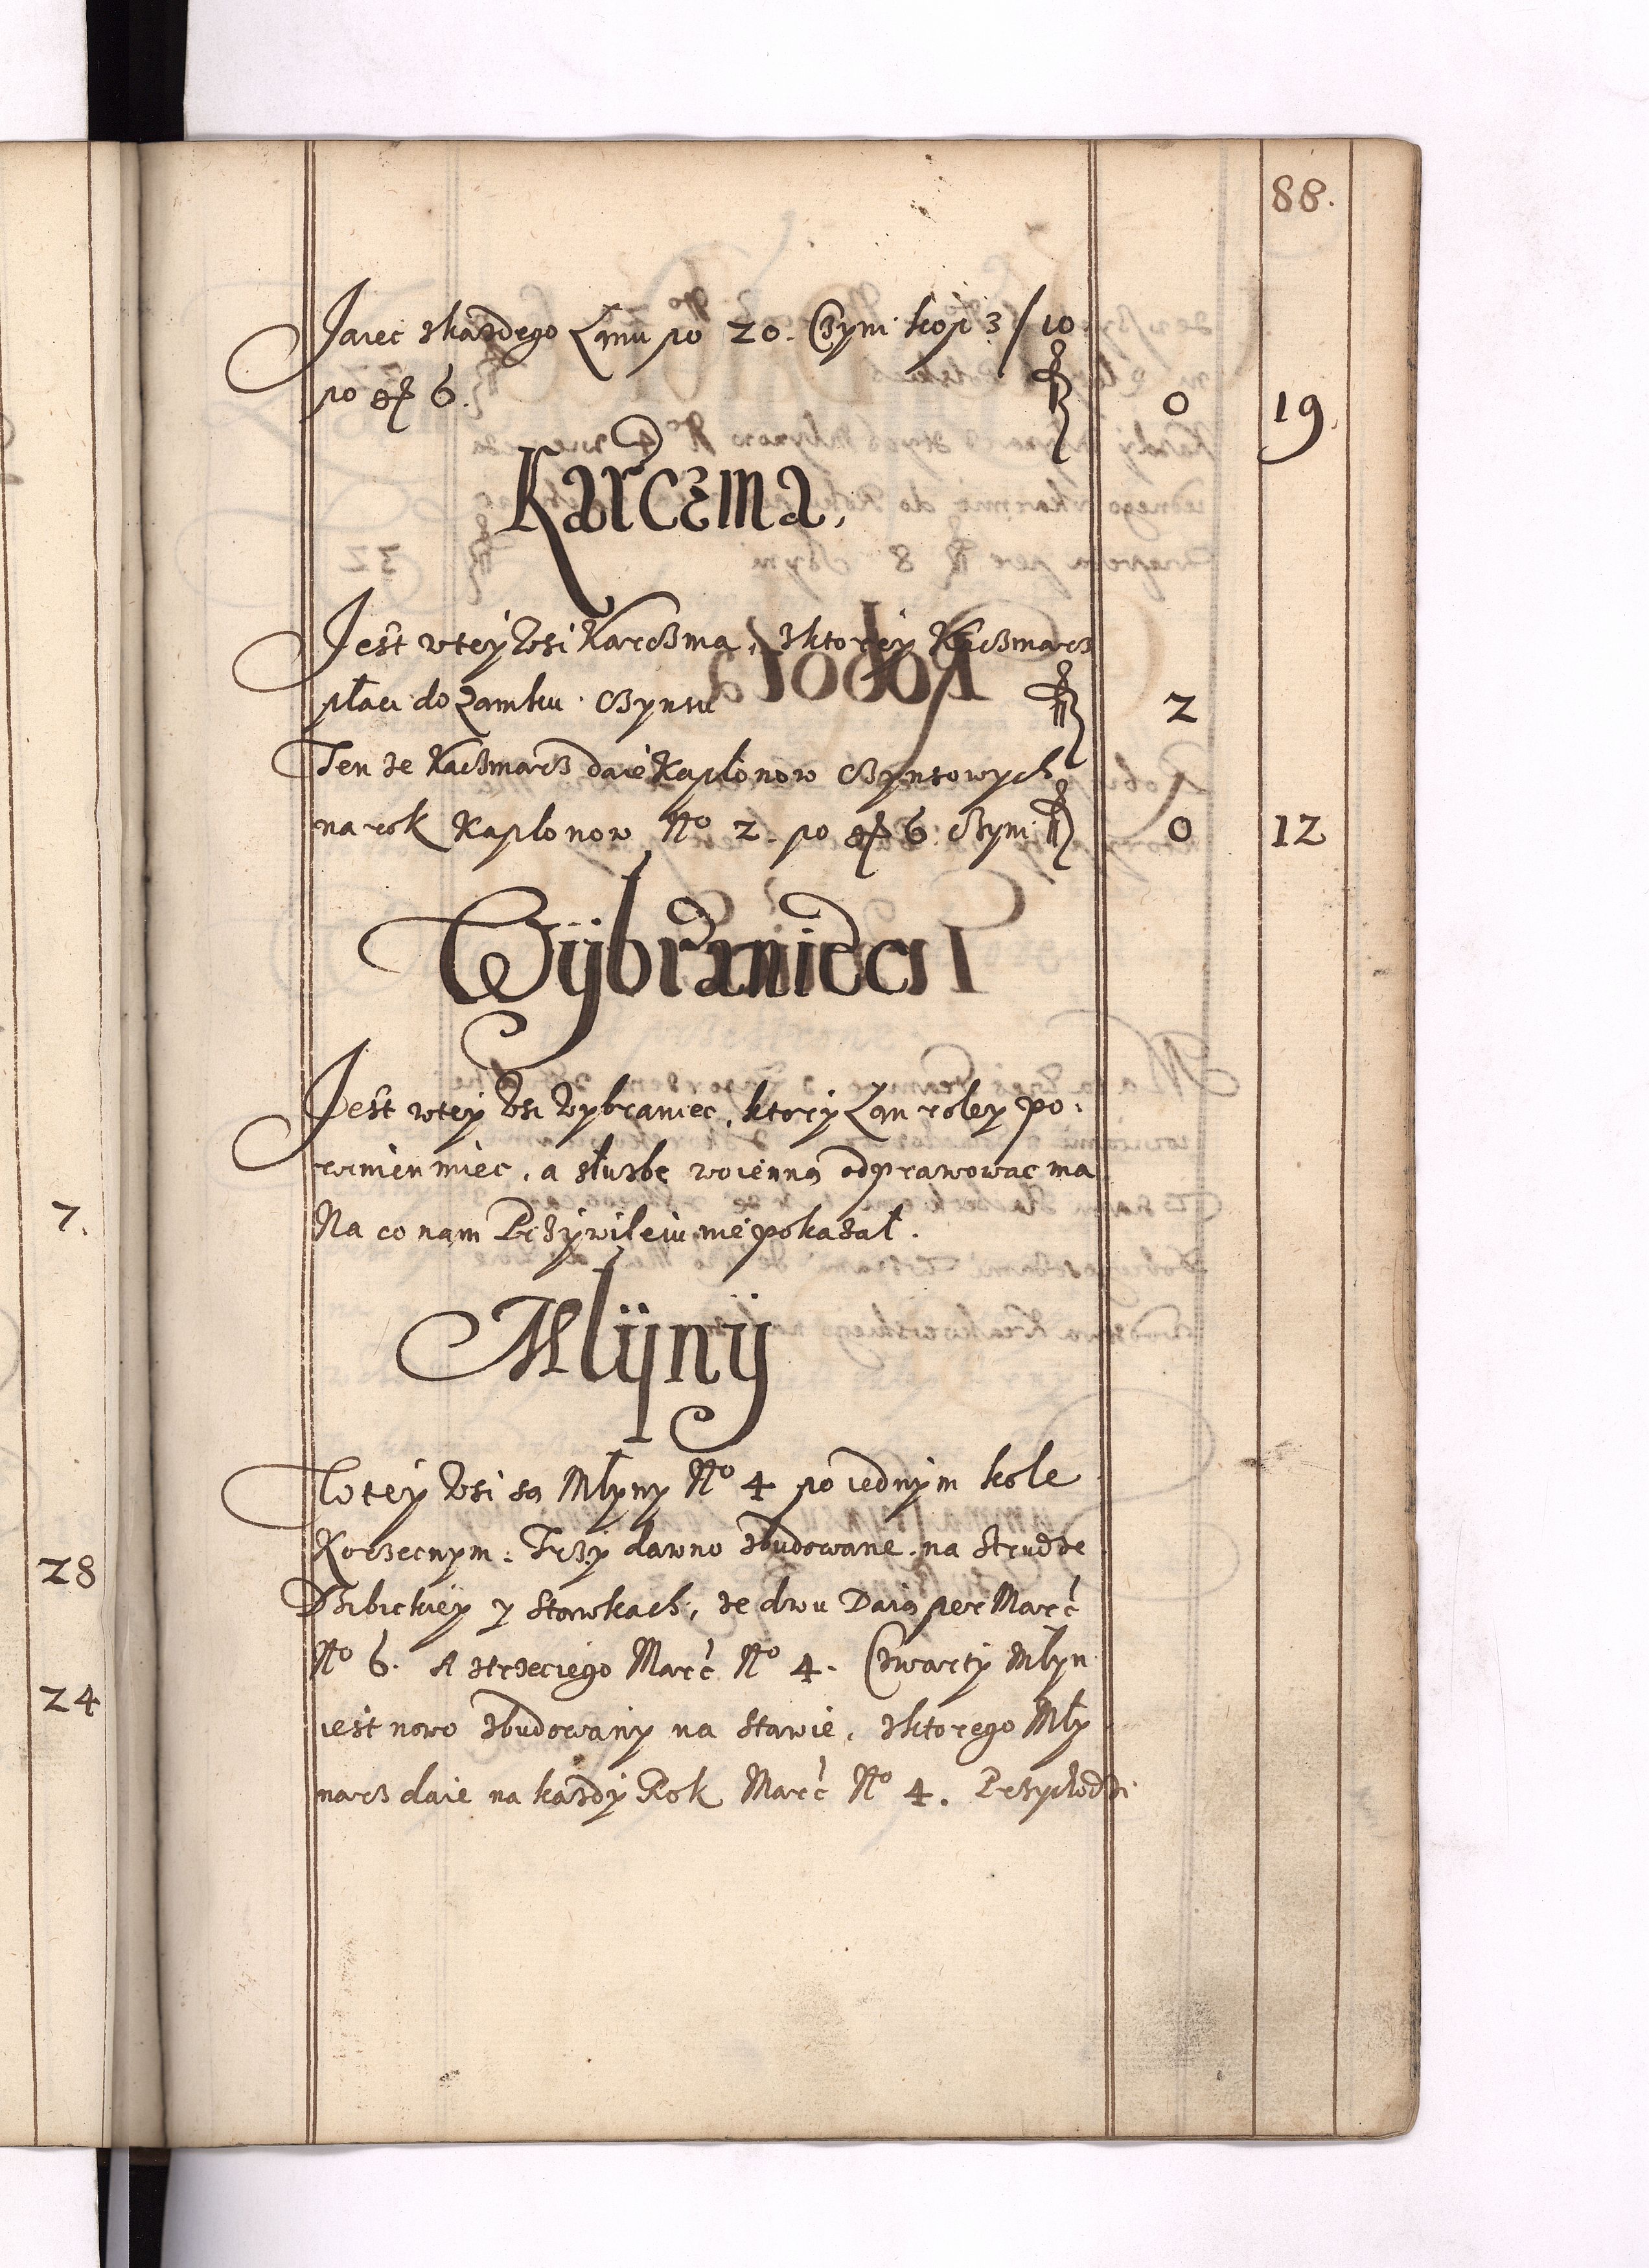 88.
Jaiec zkażdego Łanu po 20. Czyni kop 3/10
po gr 6. fl 0 19.
Karczma.
Jest wtey Wsi Karczma, zktorey Kaczmarz
płaci do Zamku Czynszu fl 2
Ten że Kaczmarz daie Kapłonow Czynszowych
na rok Kapłonow No 2. po gr 6 Czyni fl 0 12
Wÿbraniec
Jest wtey Wsi Wybraniec, ktory Łan roley po-
winien miec, a służbę woienną odprawowac ma
Na co nam Przywileiu nie pokazał.
Młÿnÿ
W tey Wsi są Młyny No 4 po iednym kole
Korzecnym. Trzy dawno zbudowane na Strudze
y Stawkach, ze dwu Daią per Marc
No 6. A ztrzeciego Marc No 4. Czwarty Młyn
iest nowo zbudowany na Stawie, zktorego Mły
narz daie na każdy Rok Marc No 4. Przychodzi
7.
28
24